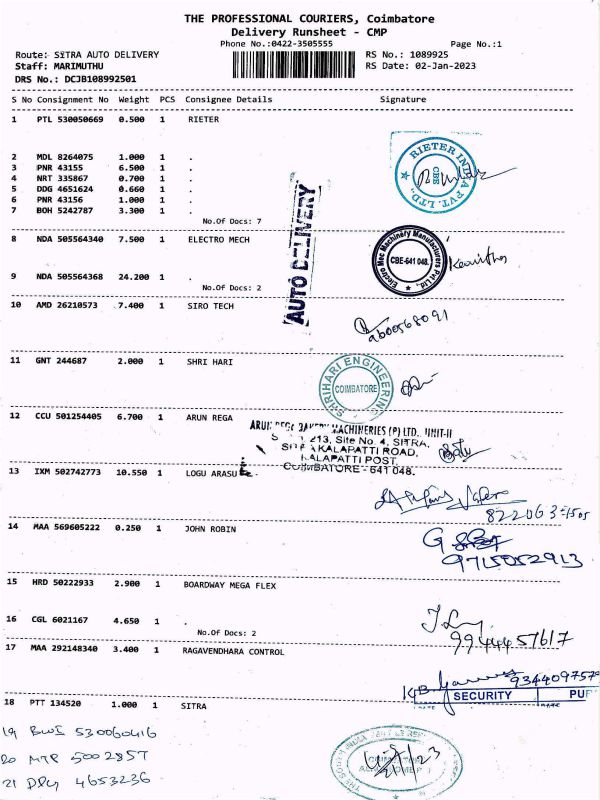 THE PROFESSIONAL COURIERS, Coimbatore
Delivery Runsheet - CMP
Phone No.:0422-3505555 Page No.:1
Route: SITRA AUTO DELIVERY RS No.: 1089925
Staff: MARIMUTHU RS Date: 02-Jan-2023
DRS No.: DCJB108992501
S No Consignment No Weight PCS Consignee Details Signature
1 PTL 530050669 0.500 1 RIETER
2 MDL 8264075 1.000 1 .
3 PNR 43155 6.500 1 .
4 NRT 335867 0.700 1 .
5 DDG 4651624 0.660 1 .
6 PNR 43156 1.000 1 .
7 BOH 5242787 3.300 1 .
No.Of Docs: 7
RIETER INDIA PVT. LTD.,
CBE
AUTO DELIVERY
8 NDA 505564340 7.500 1 ELECTRO MECH
Electro Mec Machinery Manufacturers Pvt Ltd.
CBE-641 048.
9 NDA 505564368 24.200 1 .
No.Of Docs: 2
10 AMD 26210573 7.400 1 SIRO TECH
11 GNT 244687 2.000 1 SHRI HARI
SHRIHARI ENGINEERING
COIMBATORE
12 CCU 501254405 6.700 1 ARUN REGA
ARUN REGA BAKERY MACHINERIES (P) LTD., UNIT-II
213, Site No. 4, SITRA,
KALAPATTI ROAD,
KALAPATTI POST,
COIMBATORE - 641 048.
13 IXM 502742773 10.550 1 LOGU ARASU
14 MAA 569605222 0.250 1 JOHN ROBIN
9715052913
15 HRD 50222933 2.900 1 BOARDWAY MEGA FLEX
16 CGL 6021167 4.650 1 .
No.Of Docs: 2
9944457617
17 MAA 292148340 3.400 1 RAGAVENDHARA CONTROL
934409757
SECURITY
18 PTT 134520 1.000 1 SITRA
19 BWI 530060416
20 MTP 5002857
21 DPG 4653236